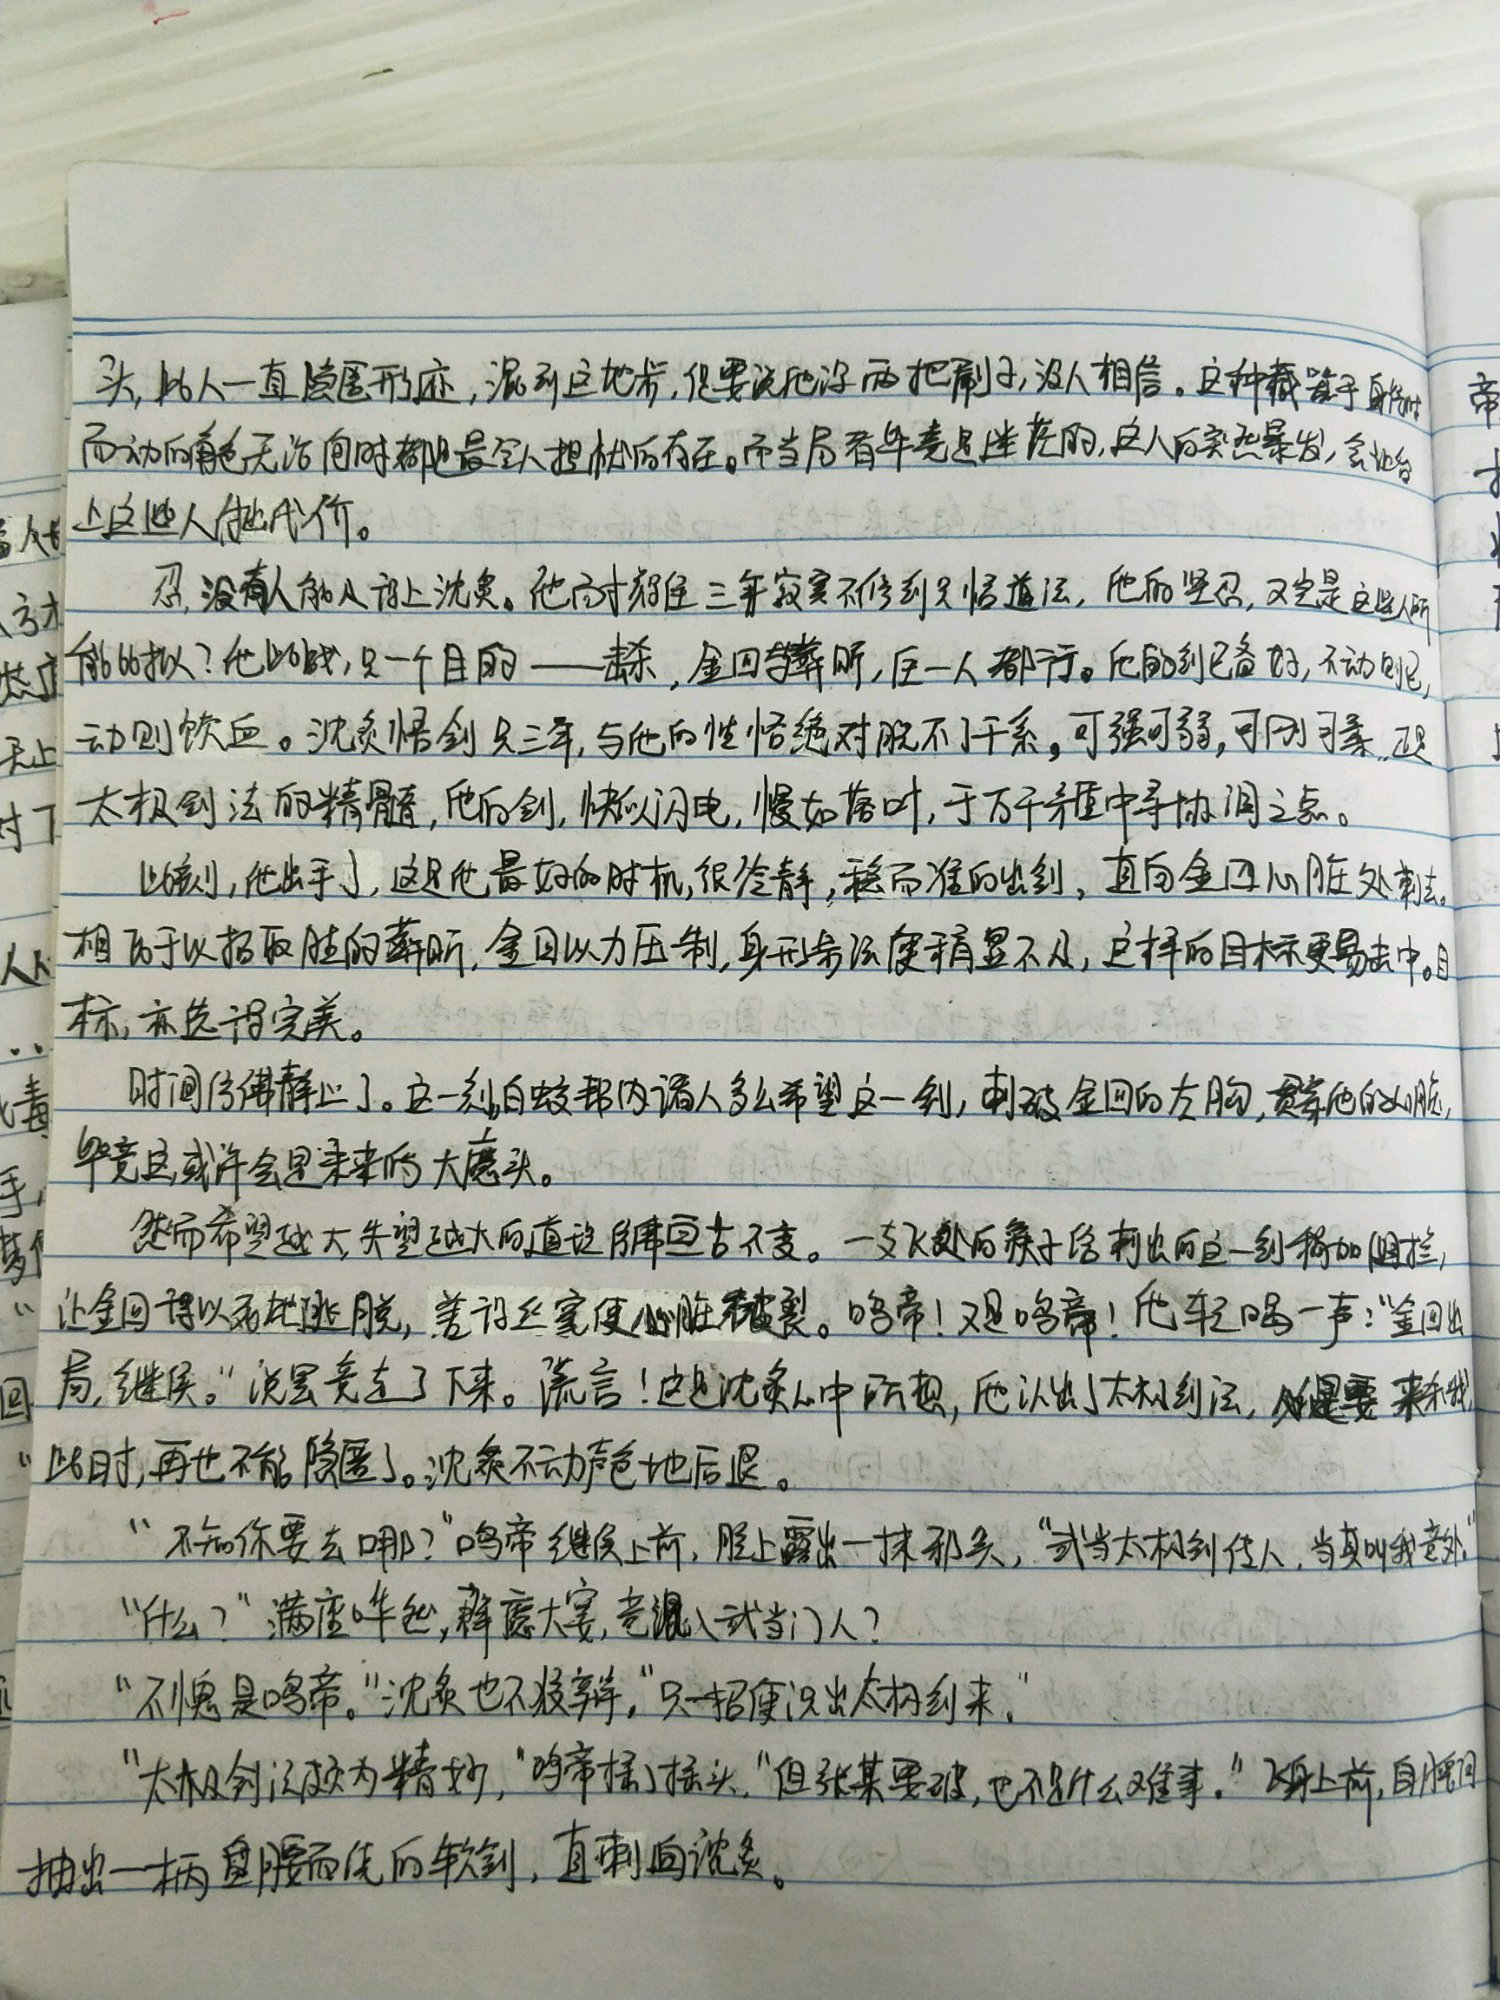 头，此人一直隐匿形迹，混到这地步，但要说他没两把刷子，没人相信。这种藏器于身待时
而动的角色无论何时都是最令人担忧的存在。而当局者毕竟是迷茫的，这人的突然暴发，会让台
上这些人付出代价。
忍，没有人能及得上沈炙。他耐得住三年寂寞不修剑只悟道法，他的坚忍，又岂是这些人所
能比拟？他此战，只一个目的——击杀，金回与葬昕，任一人都行。他的剑已备好，不动则已，
动则饮血。沈炙悟剑只三年，与他的性格绝对脱不了干系。可强可弱，可刚可柔，正是
太极剑法的精髓，他的剑，快似闪电，慢如落叶，于万千矛盾中寻协调之点。
此刻，他出手了，这是他最好的时机，很冷静，稳而准的出剑，直向金回心脏处刺去。
相较于以招取胜的葬昕，金回以力压制，身形步法便稍显不及，这样的目标更易击中。目
标，亦选得完美。
时间仿佛静止了。这一刻，白蛟邦内诸人多么希望这一剑，刺破金回的左胸，贯穿他的心脏，
毕竟这或许会是未来的大魔头。
然而希望越大失望越大的道理仿佛亘古不变。一支飞处的筷子给刺出的这一剑稍加阻拦，
让金回得以就地逃脱，差得丝毫便心脏被裂。鸣帝！又是鸣帝！他轻喝一声："金回出
局，继续。"说罢竟走了下来。谎言！这是沈炙心中所想，他认出了太极剑法，他是要来杀我，
此时，再也不能隐匿了。沈炙不动声色地后退。
"不知你要去哪？"鸣帝继续上前，脸上露出一抹邪笑，"武当太极剑传人，当真叫我意外。"
"什么？"满座哗然，释魔大宴，竟混入武当门人？
"不愧是鸣帝。"沈炙也不狡辩，"只一招便识出太极剑来。"
"太极剑法颇为精妙，"鸣帝摇了摇头，"但张某要破，也不是什么难事。"飞身上前，自腰间
抽出一柄盘腰而优的软剑，直刺向沈炙。